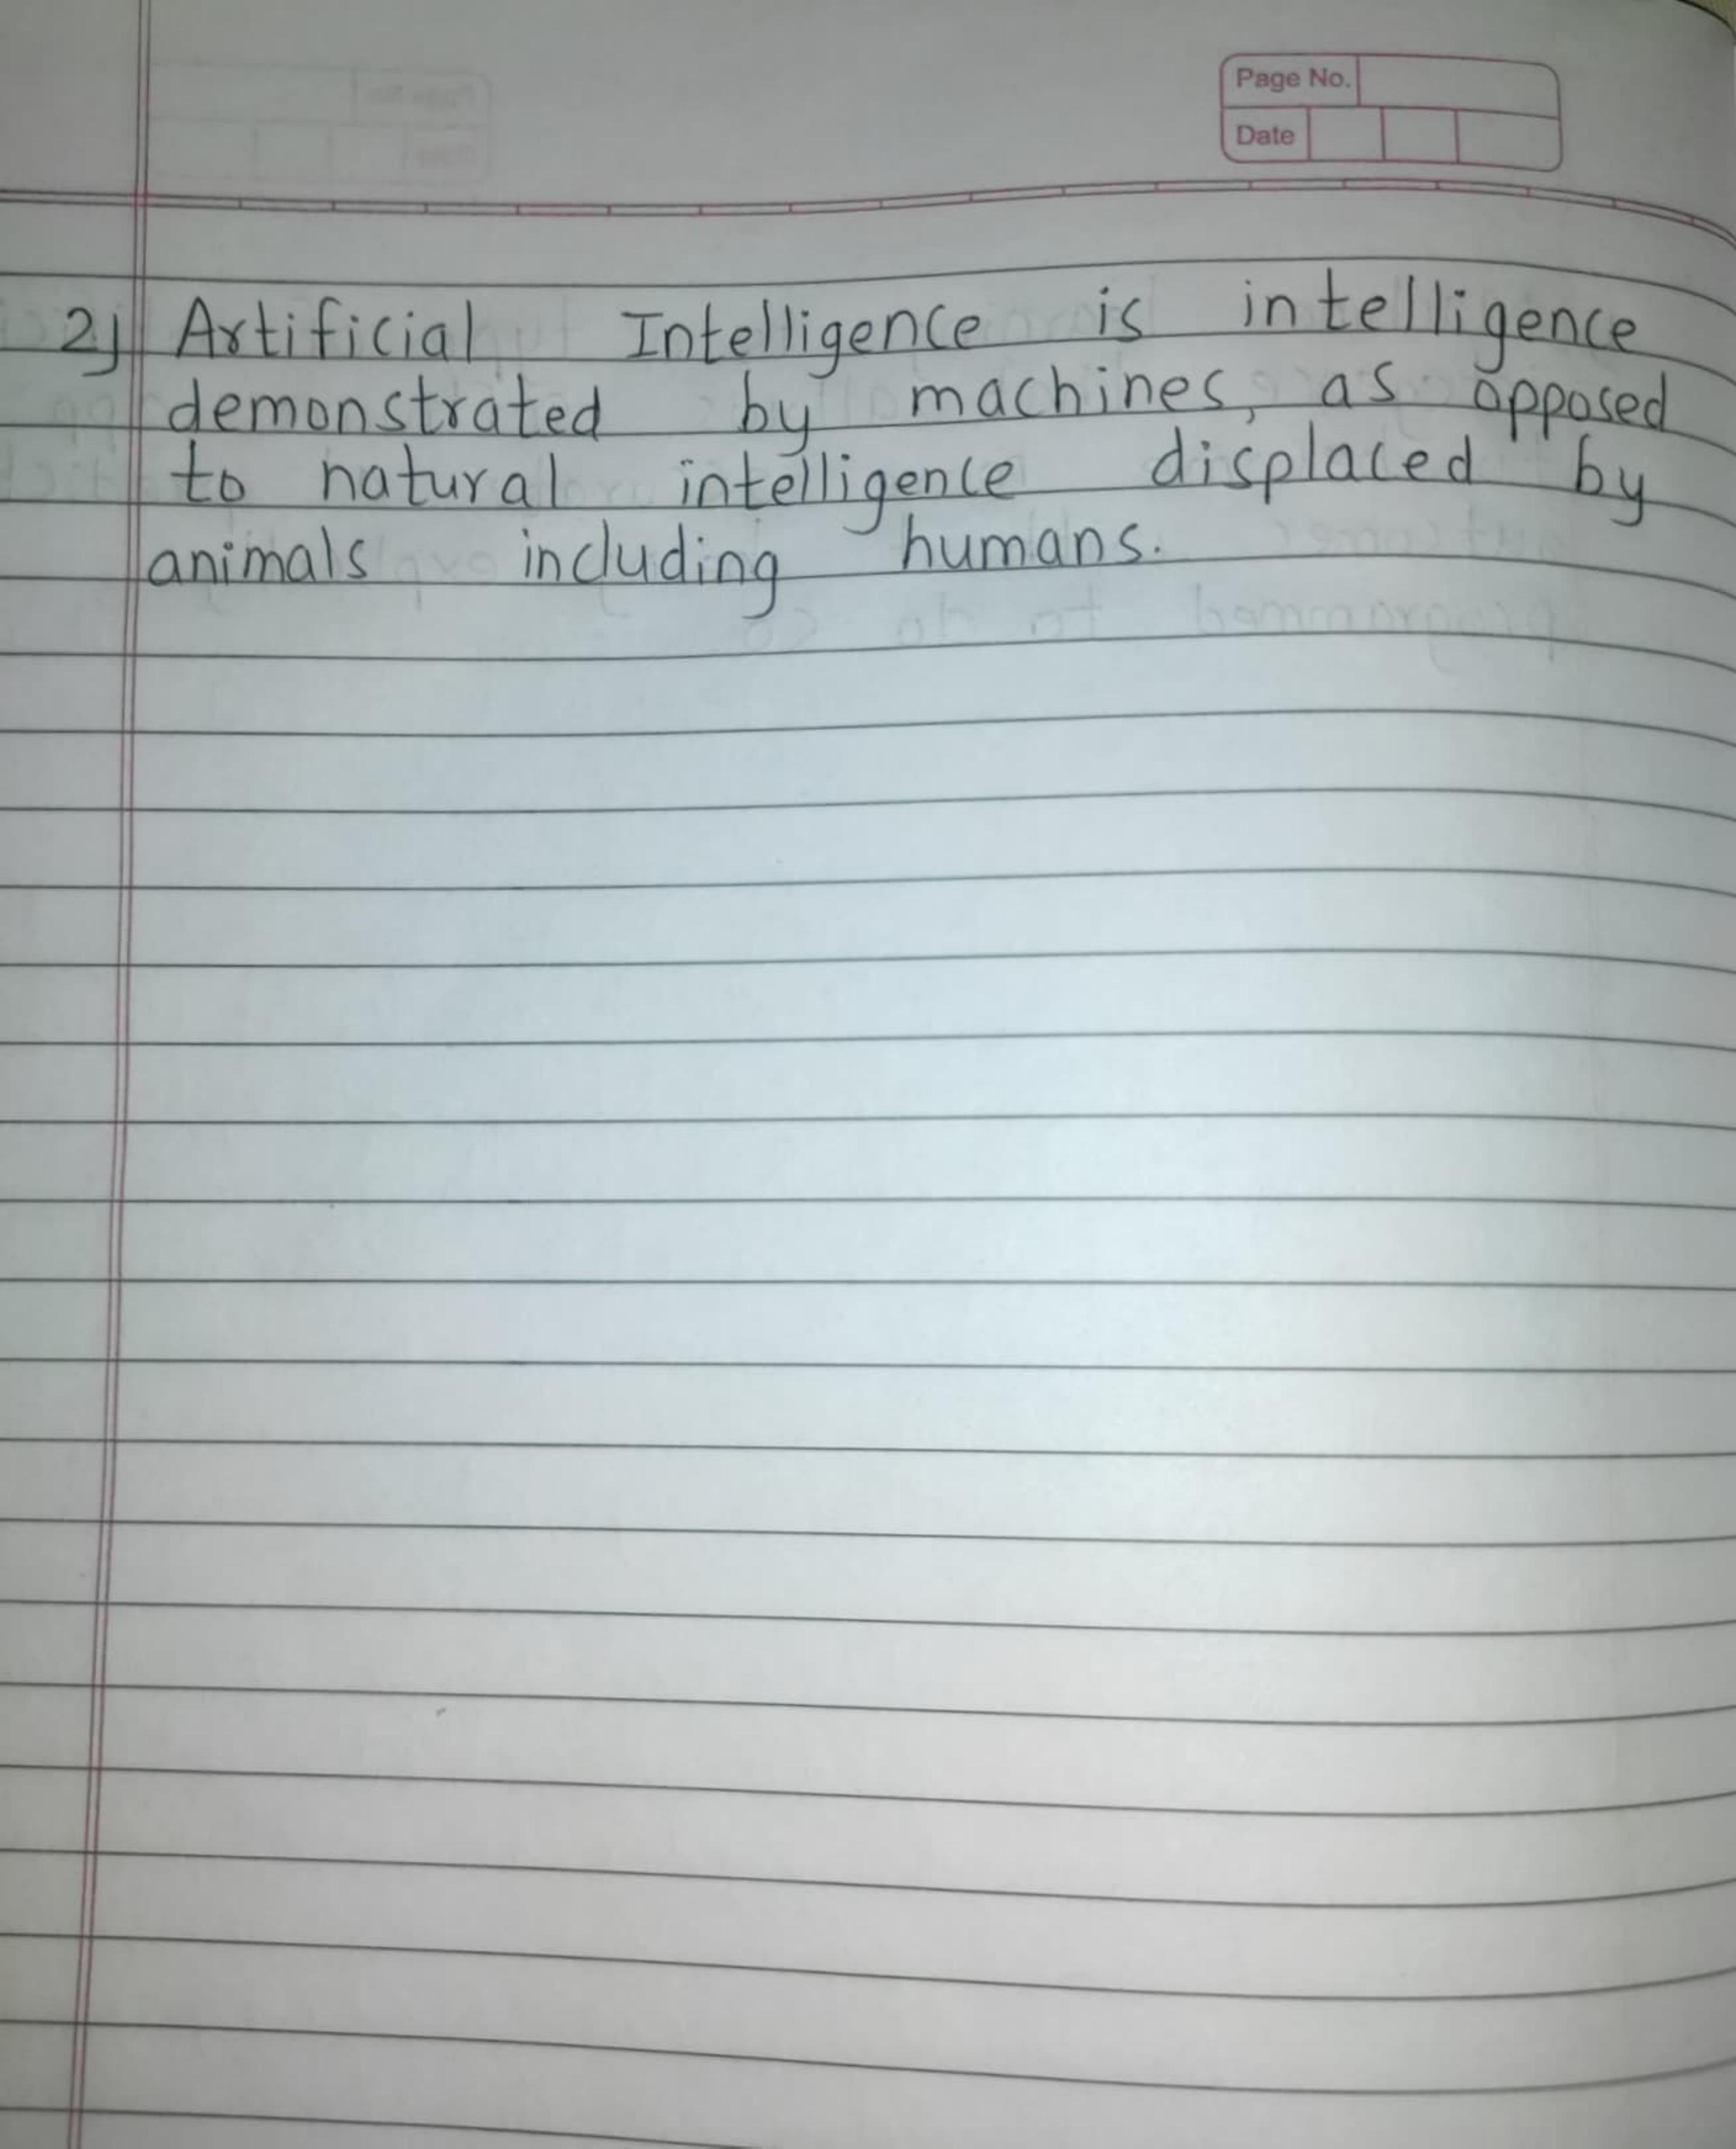 Page No.
Date
2) Artificial Intelligence is intelligence
demonstrated by machines, as opposed
to natural intelligence displaced by
animals including humans.